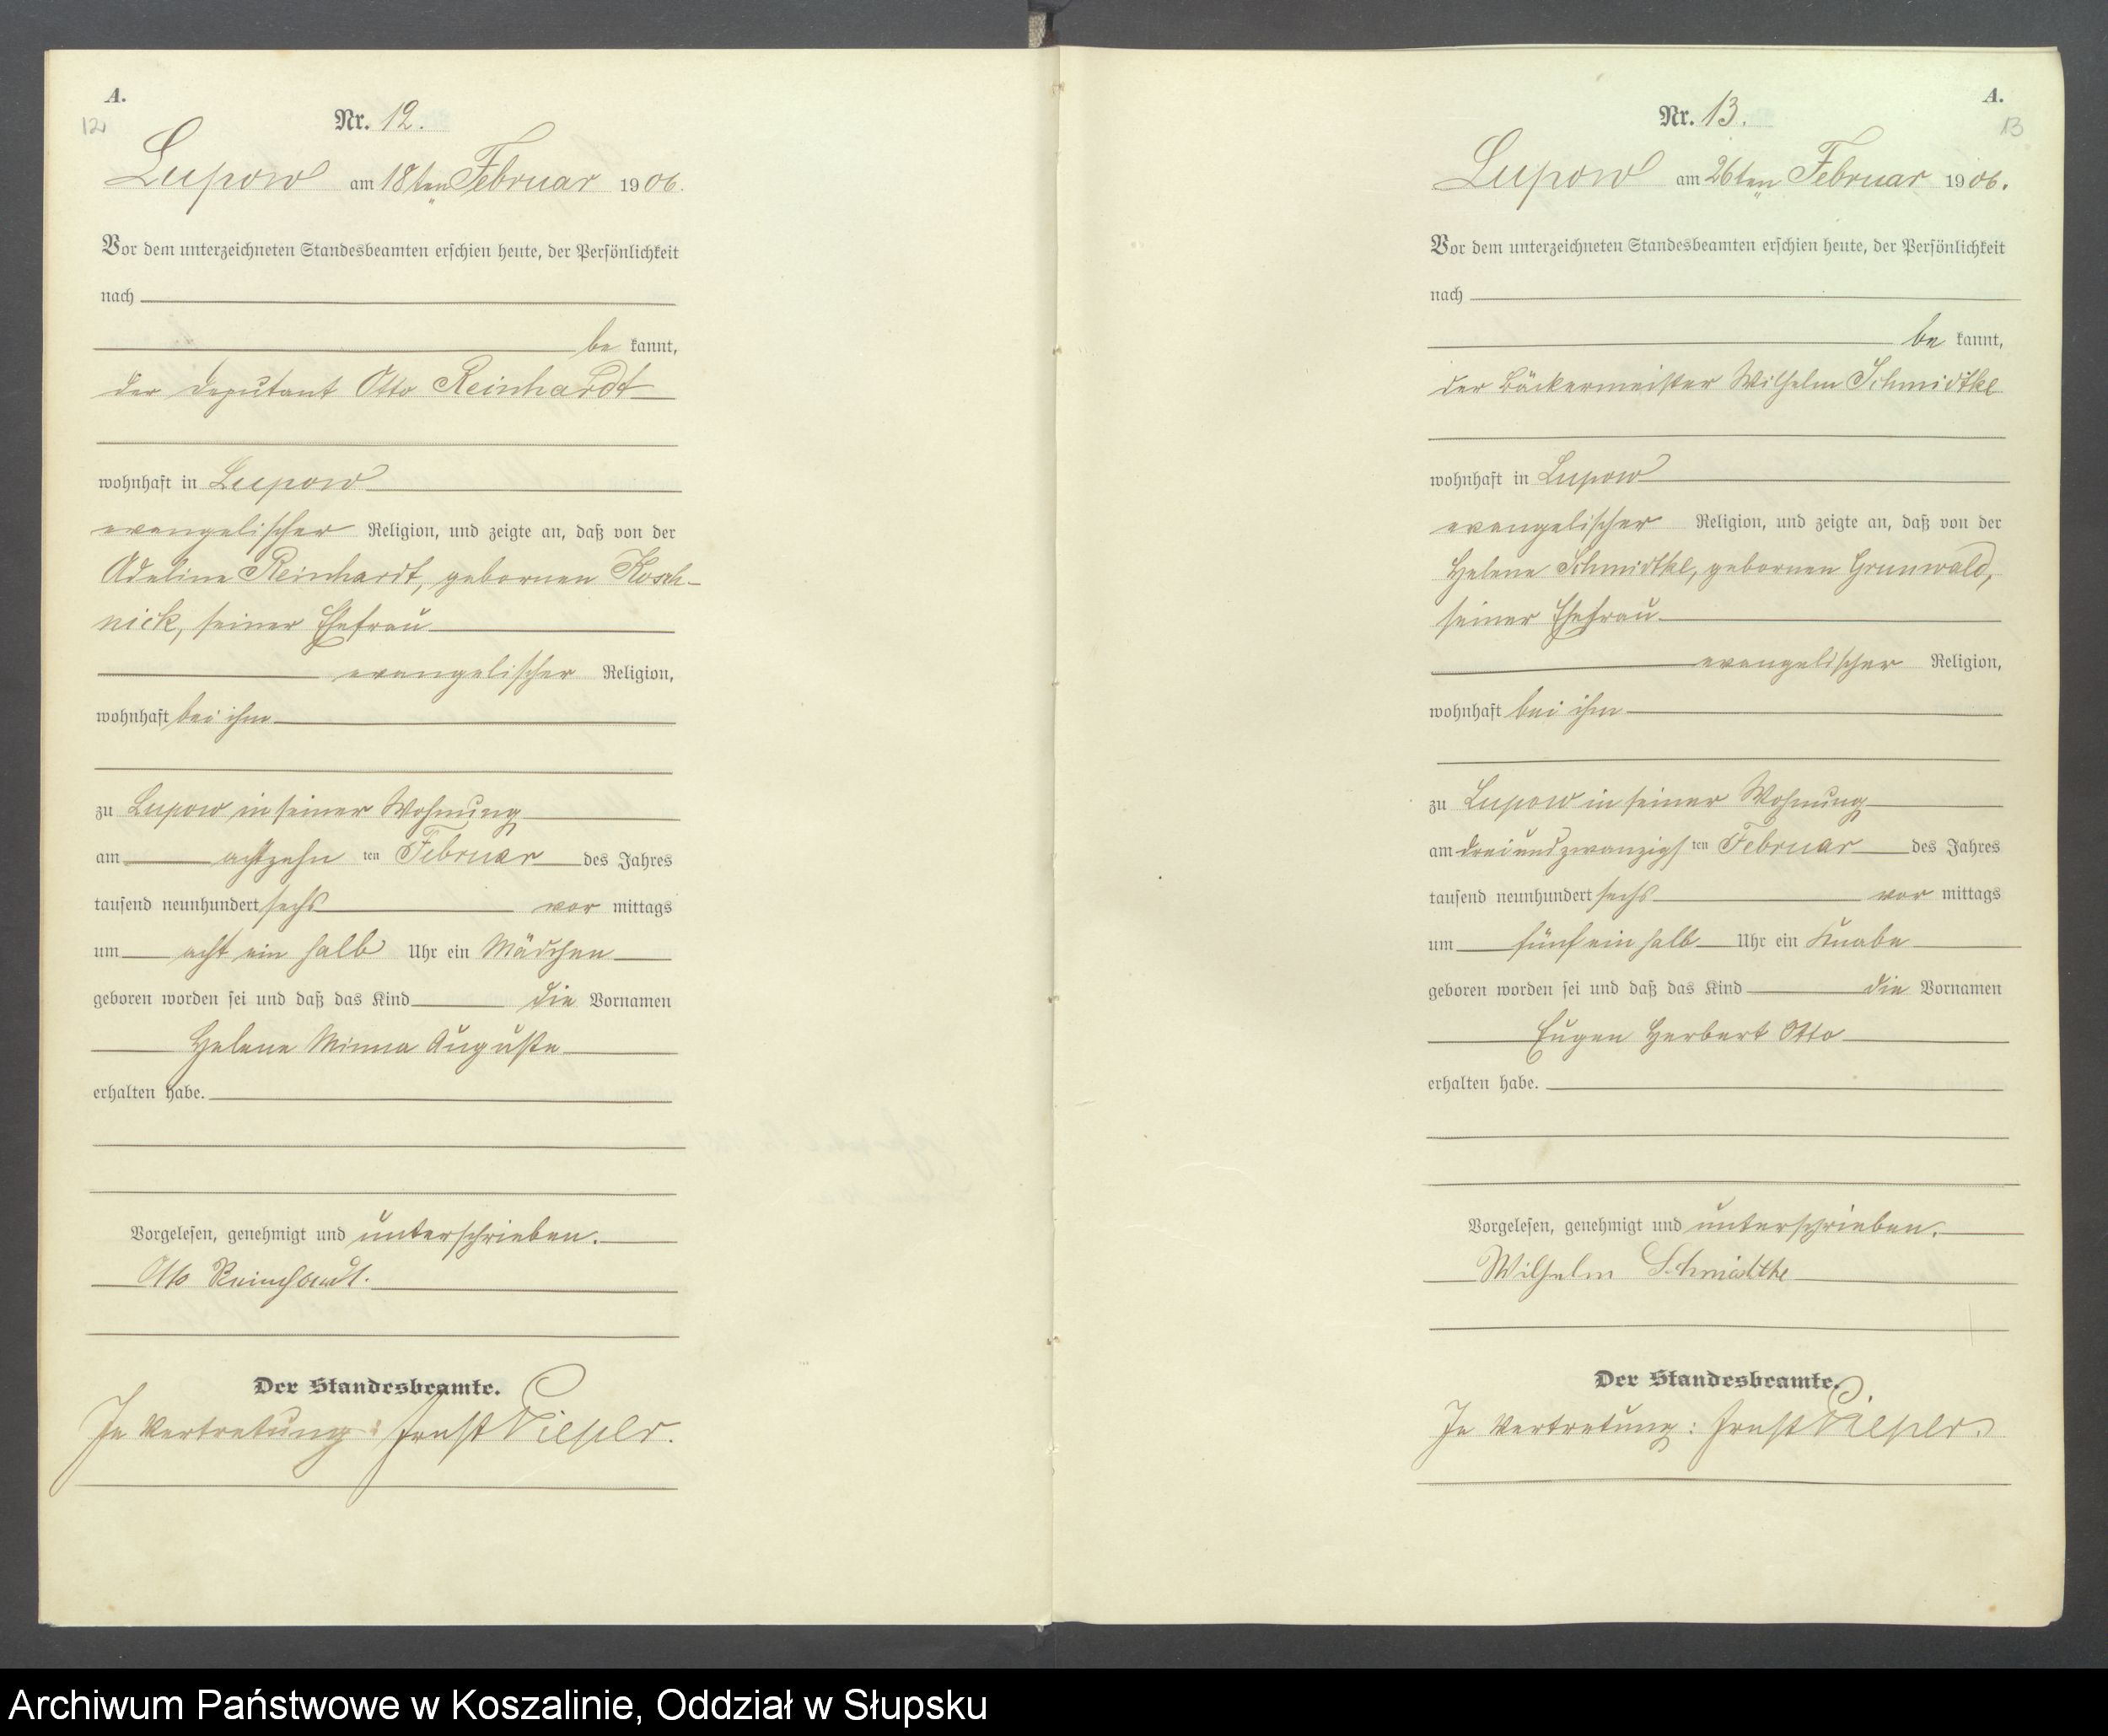 A.
12
Nr. 12.
Lupow am 18ten Februar 1906.
Vor dem unterzeichneten Standesbeamten erschien heute, der Persönlichkeit
nach
be kannt,
der Deputant Otto Reinhardt
wohnhaft in Lupow
evangelischer Religion, und zeigte an, daß von der
Adeline Reinhardt, gebornen Kosch-
nick, seiner Ehefrau
evangelischer Religion,
wohnhaft bei ihm
zu Lupow in seiner Wohnung
am achtzehn ten Februar des Jahres
tausend neunhundert sechs vor mittags
um acht ein halb Uhr ein Mädchen
geboren worden sei und daß das Kind die Vornamen
Helene Minna Auguste
erhalten habe.
Vorgelesen, genehmigt und unterschrieben.
Otto Reinhardt.
Der Standesbeamte.
In Vertretung: Ernst Pieper.
A.
13
Nr. 13.
Lupow am 26ten Februar 1906.
Vor dem unterzeichneten Standesbeamten erschien heute, der Persönlichkeit
nach
be kannt,
der Bäckermeister Wilhelm Schmidtke
wohnhaft in Lupow
evangelischer Religion, und zeigte an, daß von der
Helene Schmidtke, gebornen Grunwald,
seiner Ehefrau
evangelischer Religion,
wohnhaft bei ihm
zu Lupow in seiner Wohnung
am dreiundzwanzigs ten Februar des Jahres
tausend neunhundert sechs vor mittags
um fünf ein halb Uhr ein Knabe
geboren worden sei und daß das Kind die Vornamen
Eugen Herbert Otto
erhalten habe.
Vorgelesen, genehmigt und unterschrieben.
Wilhelm Schmidtke
Der Standesbeamte.
In Vertretung: Ernst Pieper.
Archiwum Państwowe w Koszalinie, Oddział w Słupsku